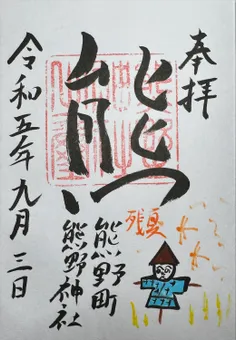 奉拝
熊
残暑
熊野町
熊野神社
令和五年九月三日